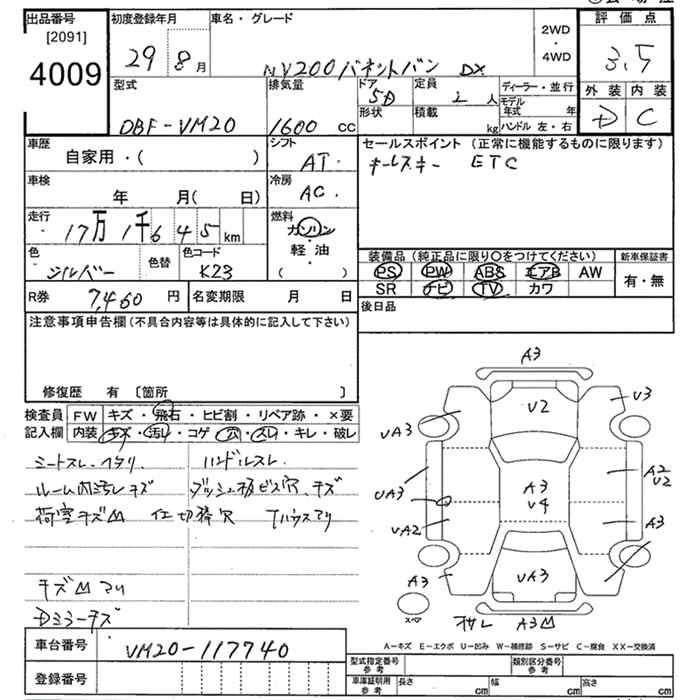 出品番号 初度登録年月 車名・グレード 評価点
[2091]
4009 29 8月 NV200バネットバン DX 2WD・4WD 3.5
型式 排気量 ドア 定員 ディーラー・並行 外装 内装
DBF-VM20 1600cc 5D 2人 モデル年式 年 D C
形状 積載 kg ハンドル 左・右
車歴 シフト セールスポイント (正常に機能するものに限ります)
自家用・( ) AT キーレスキー ETC
車検 冷房
年 月( 日) AC
走行 燃料
17万1千645km ガソリン・軽油・( )
色 色替 色コード 装備品 (純正品に限り○をつけてください) 新車保証書
シルバー K23 PS PW ABS エアB AW 有・無
SR ナビ TV カワ
R券 7,460円 名変期限 月 日 後日品
注意事項申告欄(不具合内容等は具体的に記入して下さい)
修復歴 有 〔箇所 〕
検査員 FW キズ・飛石・ヒビ割・リペア跡・×要
記入欄 内装 キズ・汚れ・コゲ・穴・スレ・キレ・破レ
シートスレ、ヘタリ ハンドルスレ
ルーム内汚レキズ ダッシュ板ビス穴、キズ
荷室キズ凹 仕切棒穴
キズ凹アリ
Dミラーキズ
A3
U2 U3
UA3
A3 U4 A2 U2
UA3
UA2 A3
A3 UA3
スペア サビレ A3凹
A-キズ E-エクボ U-凹み W-補修跡 S-サビ C-腐食 XX-交換済
車台番号 VM20-117740
登録番号
型式指定番号 参考 類別区分番号 参考
車庫証明用 参考 長さ cm 幅 cm 高さ cm